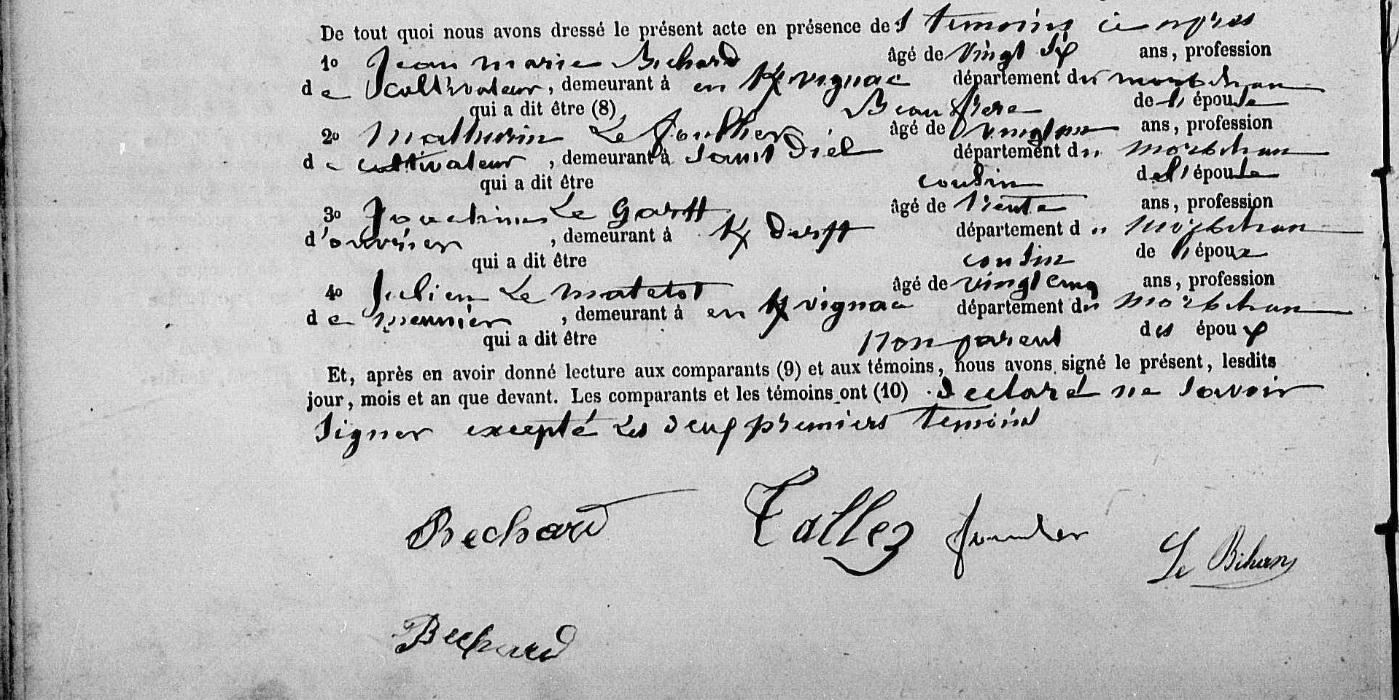 De tout quoi nous avons dressé le présent acte en présence des temoins ci apres
1o Jean marie Bechard âgé de vingt six ans, profession
de cultivateur, demeurant à en Kvignac département du morbihan
qui a dit être (8) Beau frere de l'épouse
2o Mathurin Le âgé de ans, profession
de cultivateur, demeurant à département du morbihan
qui a dit être cousin de l'épouse
3o Joachim Le Garff âgé de trente ans, profession
d'ouvrier, demeurant à département du morbihan
qui a dit être cousin de l'époux
4o Julien Le matelot âgé de vingt cinq ans, profession
de meunier, demeurant à en Kvignac département du morbihan
qui a dit être Non parent des époux
Et, après en avoir donné lecture aux comparants (9) et aux témoins, nous avons signé le présent, lesdits
jour, mois et an que devant. Les comparants et les témoins ont (10) declaré ne savoir
signer excepté les deux premiers temoins
Bechard Tallez Le Bihan
Bechard